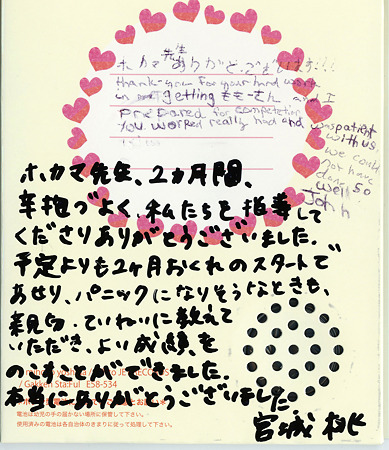 ホカマ先生
ありがとうございます!!
thank-you for your hard work
on getting ももさん and I
prepared for competetion
You worked really hard and was patient
with us
we could
not have
done so
well
John
ホカマ先生、2カ月間、
辛抱づよく、私たちを指導して
くださりありがとうございました。
予定よりも2ヶ月おくれのスタートで
あせり、パニックになりそうなときも、
親切、ていねいに教えて
いただき、よい成績を
のこすことができました。
本当にありがとうございました
宮城 桃
/ Gakken Sta:Ful E58-534
電池は幼児の手の届かない場所に保管して下さい。
使用済みの電池は各自治体のきまりに従って処理して下さい。